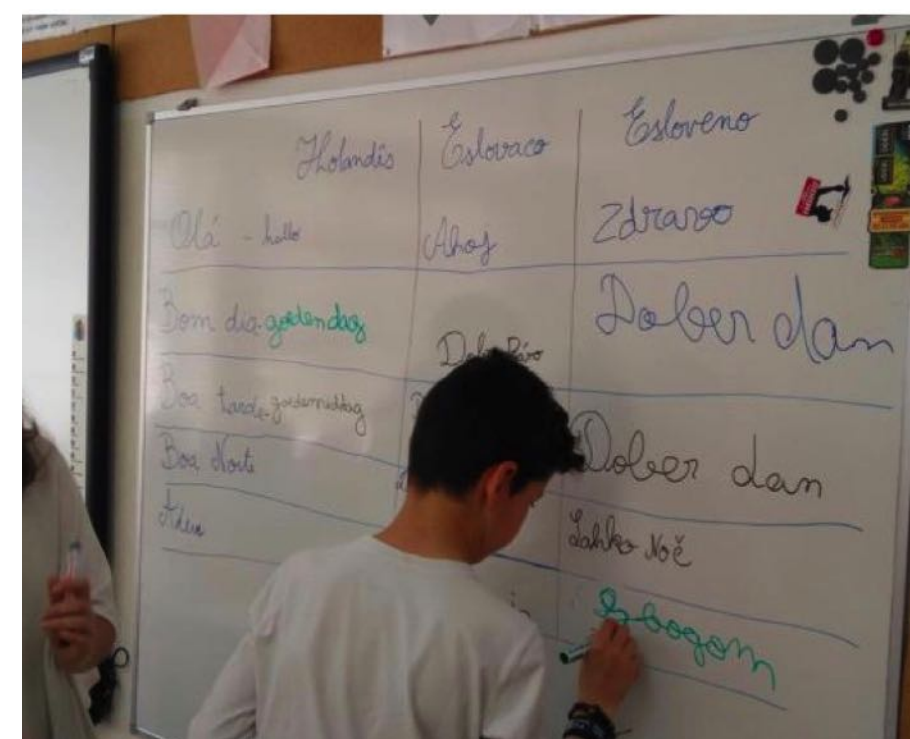 Holandês Eslovaco Esloveno
Olá - hallo Ahoj Zdravo
Bom dia - goedendag Ráno Dober dan
Boa tarde - goedemiddag Dober dan
Boa Noite Lahko Noč
Adeus Zbogom